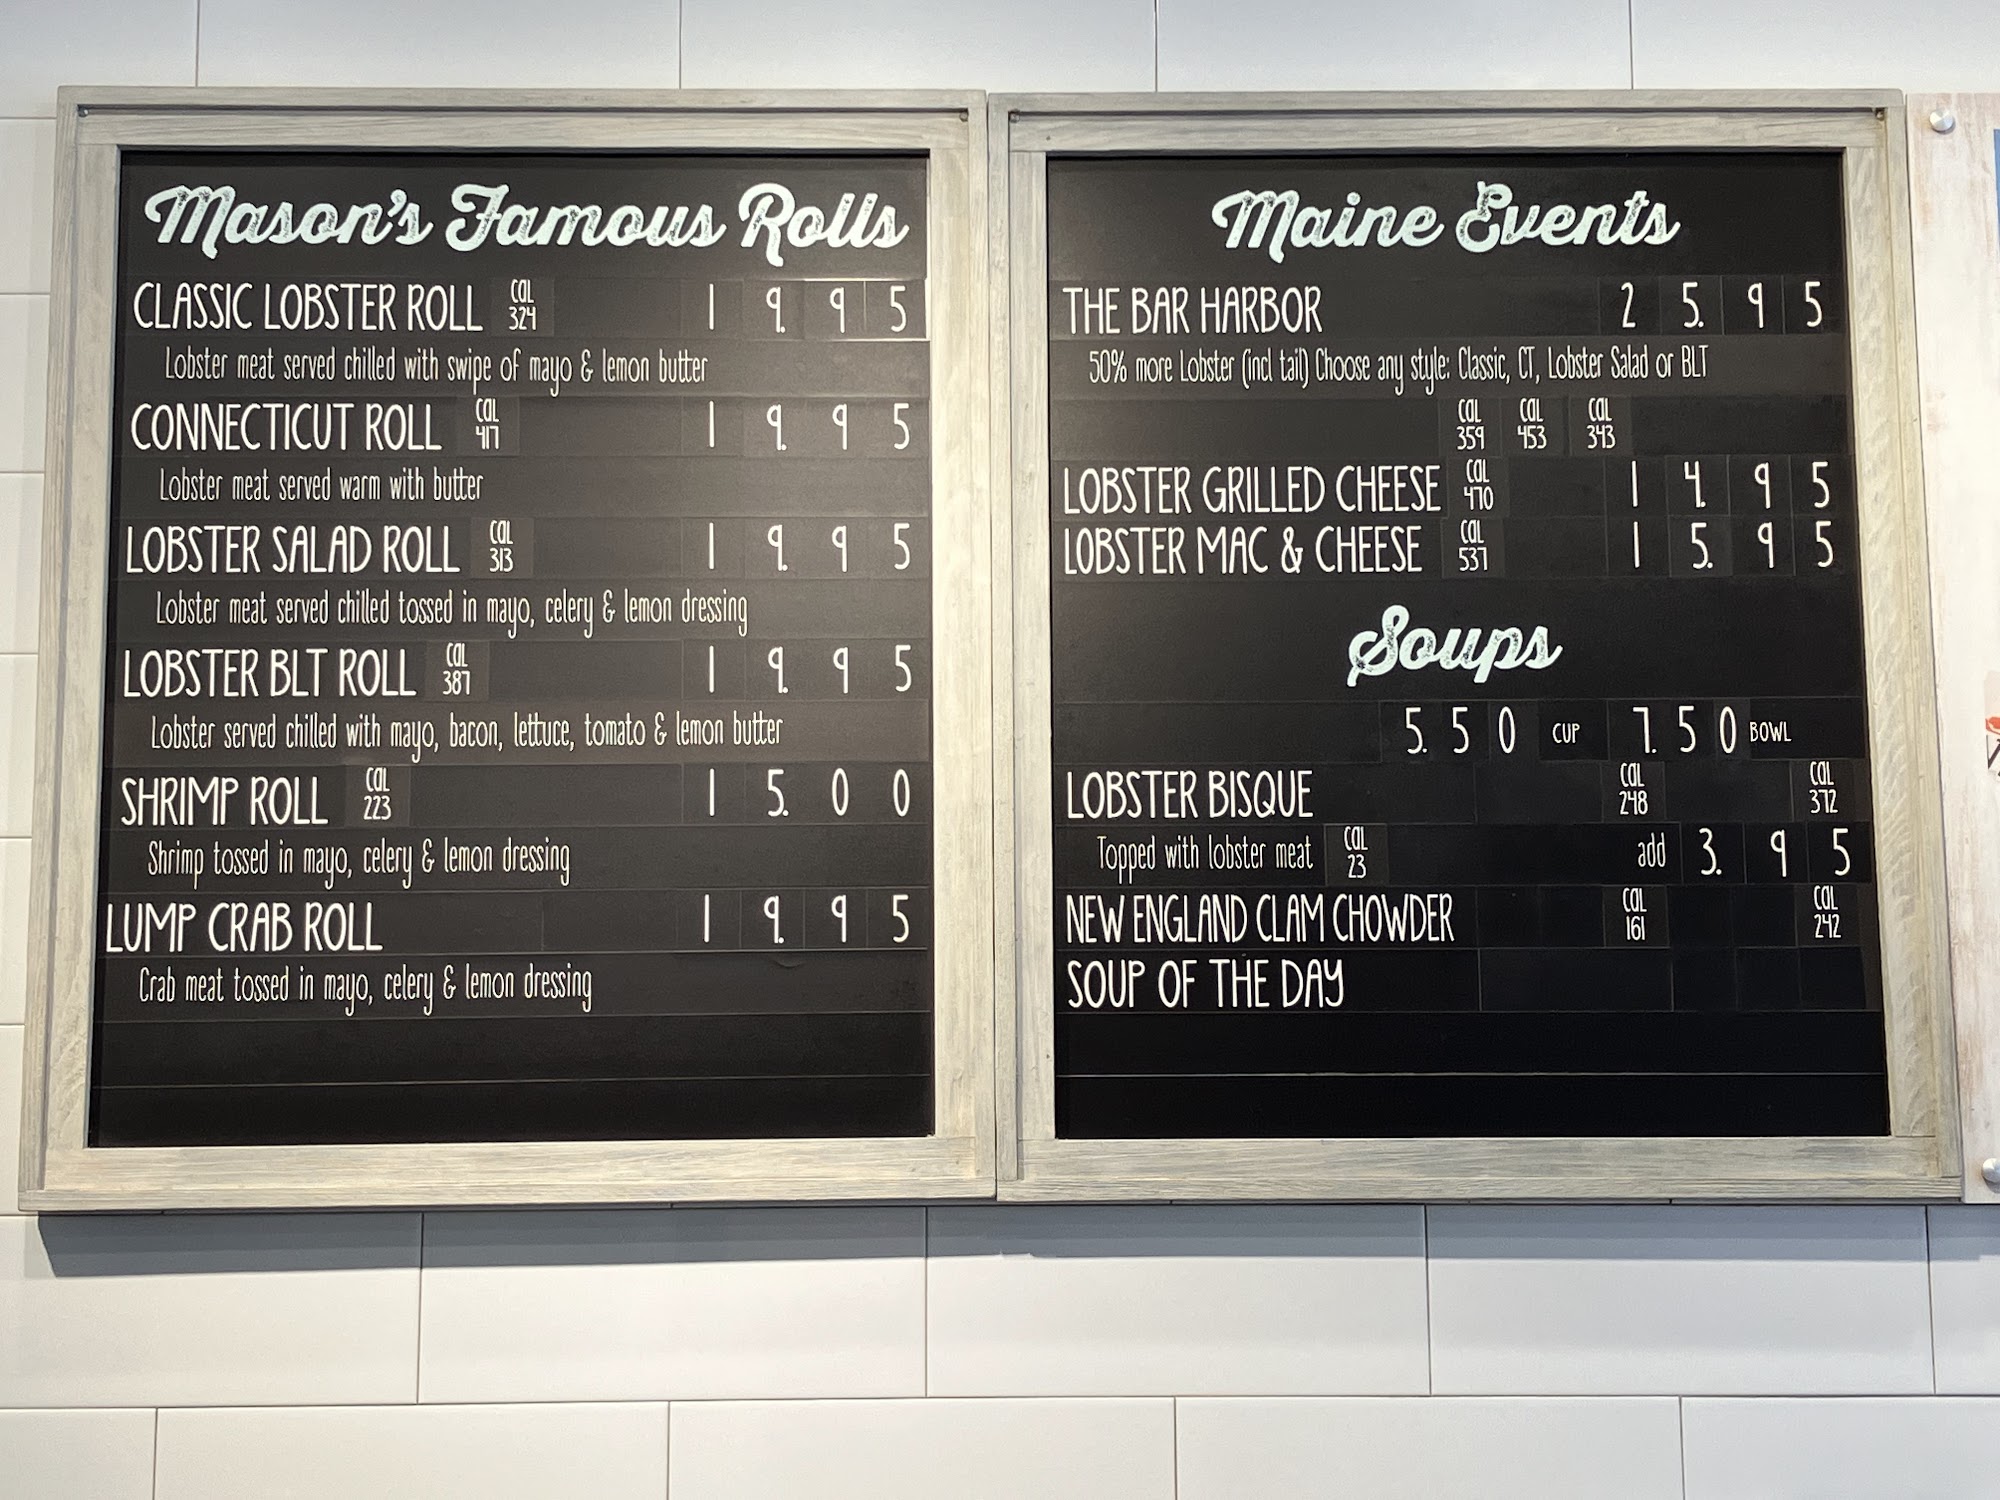 Mason's Famous Rolls
CLASSIC LOBSTER ROLL CAL 324 19.95
Lobster meat served chilled with swipe of mayo & lemon butter
CONNECTICUT ROLL CAL 417 19.95
Lobster meat served warm with butter
LOBSTER SALAD ROLL CAL 313 19.95
Lobster meat served chilled tossed in mayo, celery & lemon dressing
LOBSTER BLT ROLL CAL 387 19.95
Lobster served chilled with mayo, bacon, lettuce, tomato & lemon butter
SHRIMP ROLL CAL 223 15.00
Shrimp tossed in mayo, celery & lemon dressing
LUMP CRAB ROLL 19.95
Crab meat tossed in mayo, celery & lemon dressing
Maine Events
THE BAR HARBOR 25.95
50% more Lobster (incl tail) Choose any style: Classic, CT, Lobster Salad or BLT
CAL 359 CAL 453 CAL 343
LOBSTER GRILLED CHEESE CAL 470 14.95
LOBSTER MAC & CHEESE CAL 537 15.95
Soups
5.50 CUP 7.50 BOWL
LOBSTER BISQUE CAL 248 CAL 372
Topped with lobster meat CAL 23 add 3.95
NEW ENGLAND CLAM CHOWDER CAL 161 CAL 242
SOUP OF THE DAY